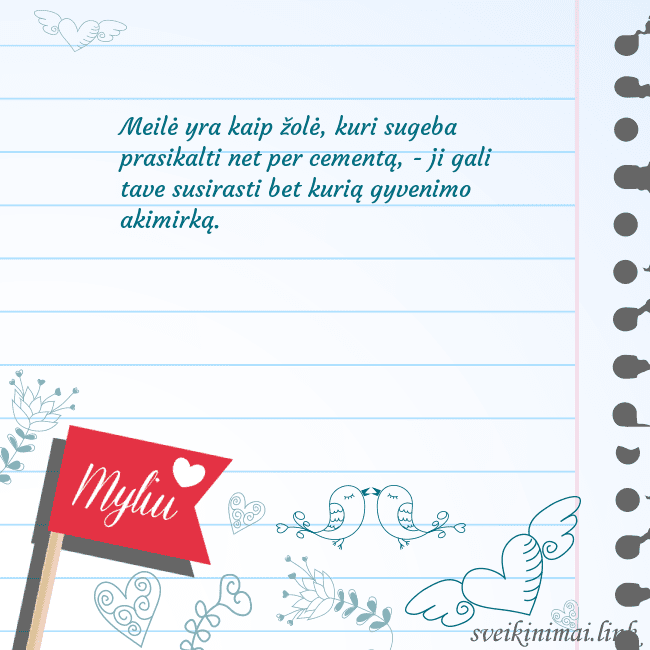 Meilė yra kaip žolė, kuri sugeba
prasikalti net per cementą, - ji gali
tave susirasti bet kurią gyvenimo
akimirką.
Myliu
sveikinimai.link